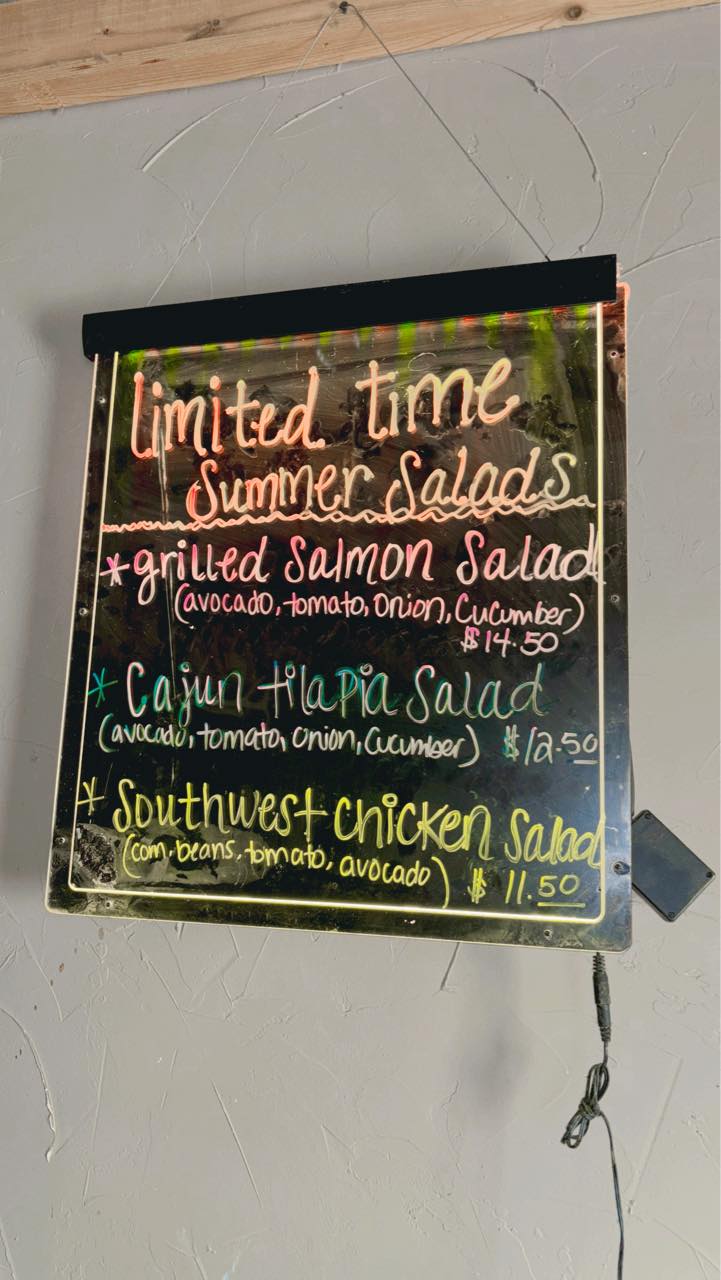 Limited time
Summer Salads
*grilled Salmon Salad
(avocado, tomato, onion, Cucumber)
$14.50
* Cajun tilapia Salad
(avocado, tomato, onion, Cucumber) $12.50
* Southwest chicken Salad
(corn, beans, tomato, avocado) $ 11.50